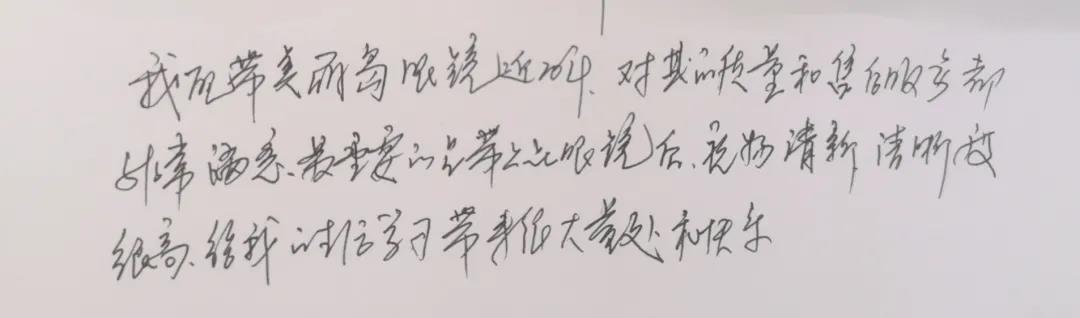 我配带美丽岛眼镜近20年、对其的质量和售后服务都
非常满意、最重要的是带上此眼镜后、视物清新 清晰度
很高、给我的生活学习带来很大益处和快乐